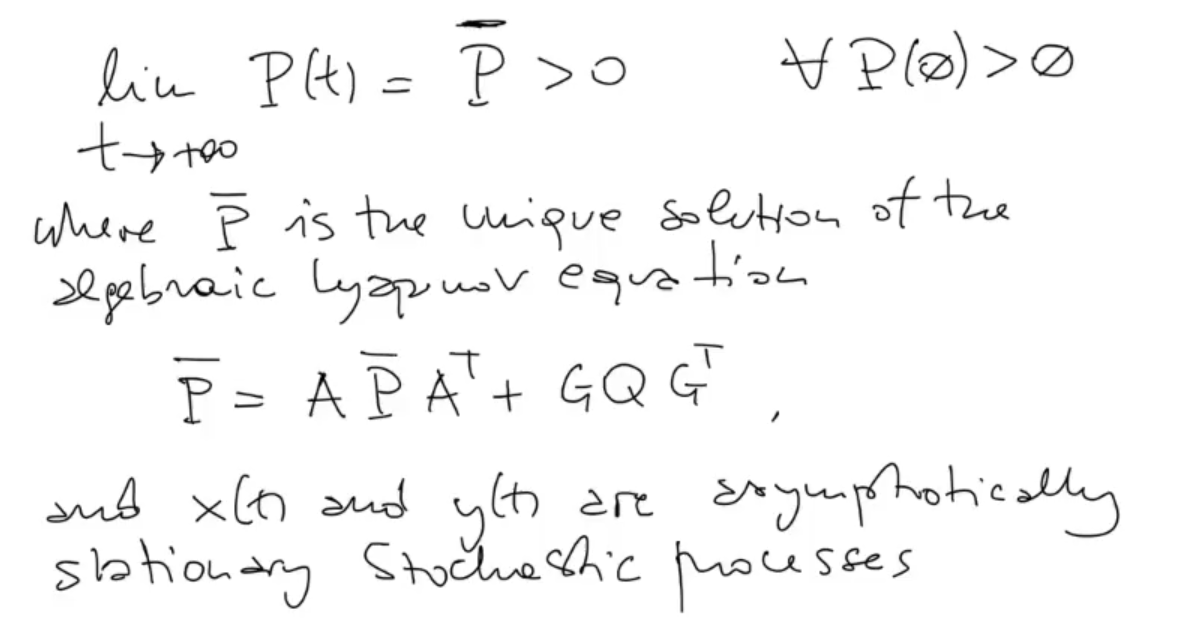 lim P(t) = P̄ > 0 ∀ P(∅) > ∅
t→+∞
where P̄ is the unique solution of the
algebraic Lyapunov equation
P̄ = A P̄ Aᵀ + G Q Gᵀ ,
and x(t) and y(t) are asymphotically
stationary stochastic processes